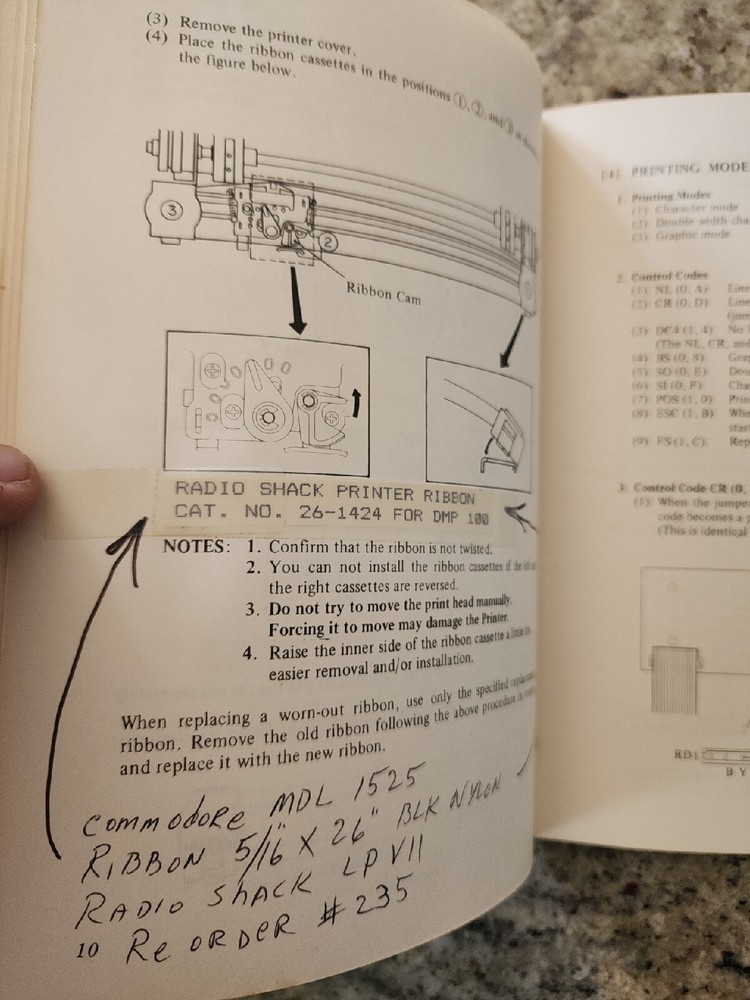 (3) Remove the printer cover.
(4) Place the ribbon cassettes in the positions ①, ②, and ③ as
the figure below.
③
②
Ribbon Cam
RADIO SHACK PRINTER RIBBON
CAT. NO. 26-1424 FOR DMP 100
NOTES: 1. Confirm that the ribbon is not twisted.
2. You can not install the ribbon cassettes if the left
the right cassettes are reversed.
3. Do not try to move the print head manually.
Forcing it to move may damage the Printer.
4. Raise the inner side of the ribbon cassette a little
easier removal and/or installation.
When replacing a worn-out ribbon, use only the specified
ribbon. Remove the old ribbon following the above procedure
and replace it with the new ribbon.
COMMODORE MDL 1525
RIBBON 5/16" X 26" BLK NYLON
RADIO SHACK LP VII
10 RE ORDER #235
[4] PRINTING MODE
1. Printing Modes
(1) Character mode
(2) Double width
(3) Graphic mode
2. Control Codes
(1) NL (0, A) Line
(2) CR (0, D) Line
(3) DC4 (1, 4) No
(The NL, CR, and
(4) BS (0, 8)
(5) SO (0, E)
(6) SI (0, F)
(7) POS (1, 0)
(8) ESC (1, B)
(9) FS (1, C) Rep
3. Control Code CR (0,
(1) When the jumper
code becomes a
(This is identical
RD1
B Y